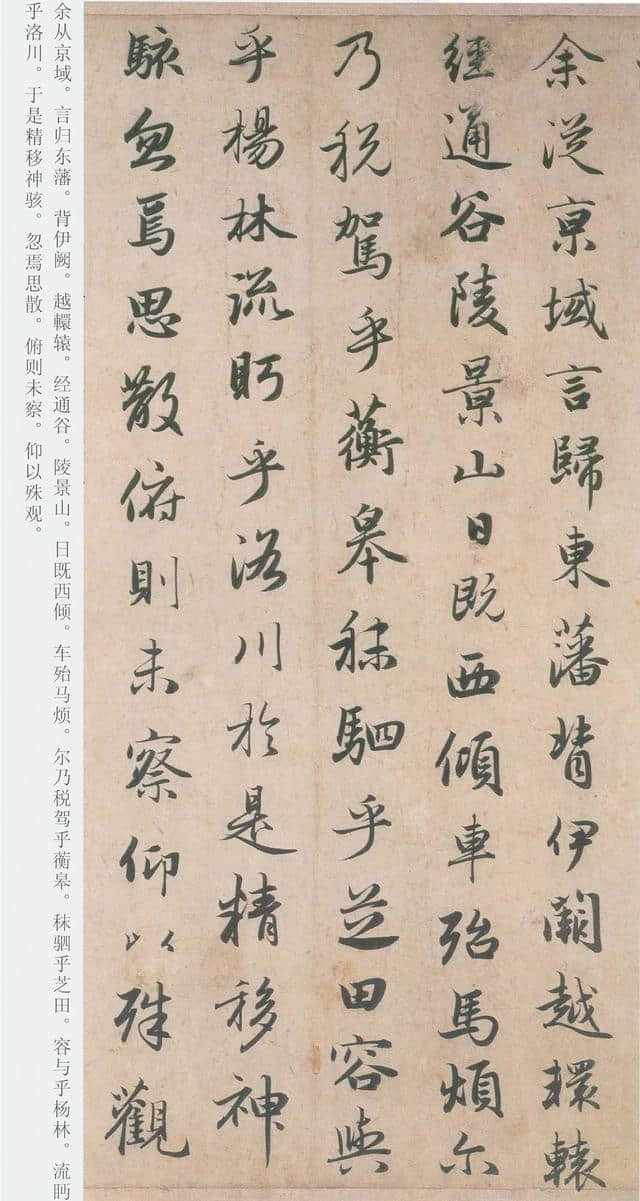 余從京域言歸東藩背伊闕越轘轅
經通谷陵景山日既西傾車殆馬煩尔
乃税駕乎蘅皋秣駟乎芝田容與
乎楊林流眄乎洛川於是精移神
駭忽焉思散俯則未察仰以殊觀
余从京域。言归东藩。背伊阙。越轘辕。经通谷。陵景山。日既西倾。车殆马烦。尔乃税驾乎蘅皋。秣驷乎芝田。容与乎杨林。流眄
乎洛川。于是精移神骇。忽焉思散。俯则未察。仰以殊观。